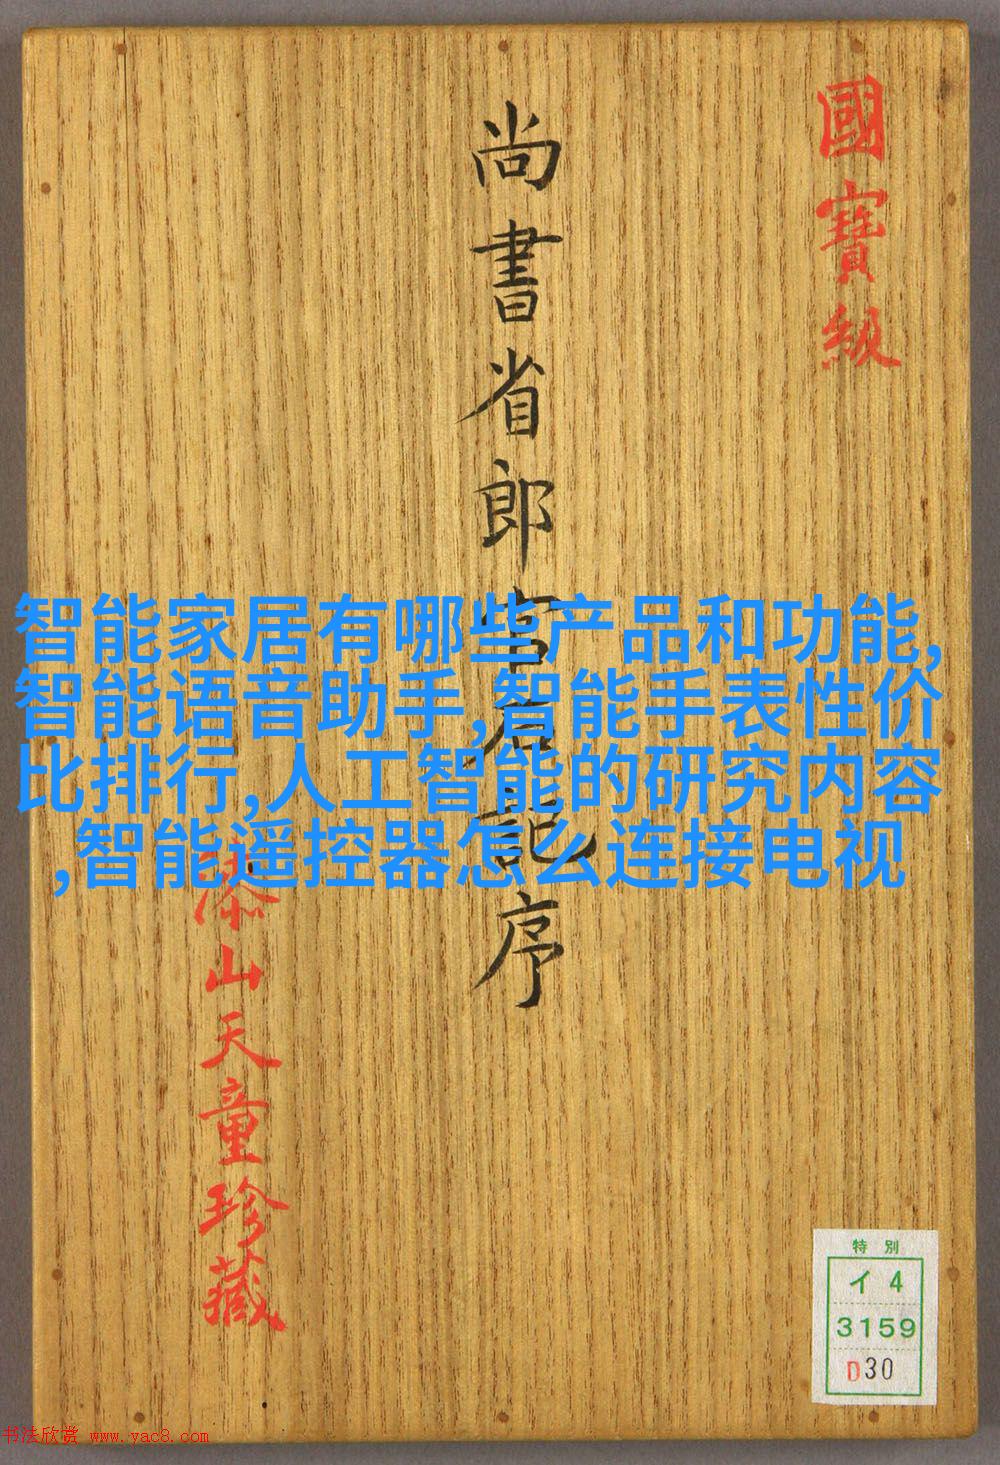 國寶級
尚書省郎官石記序
泰山天童珍藏
智能家居有哪些产品和功能,
智能语音助手,智能手表性价
比排行,人工智能的研究内容
,智能遥控器怎么连接电视
特別
イ4
3159
D30
书法欣赏 www.yac8.com